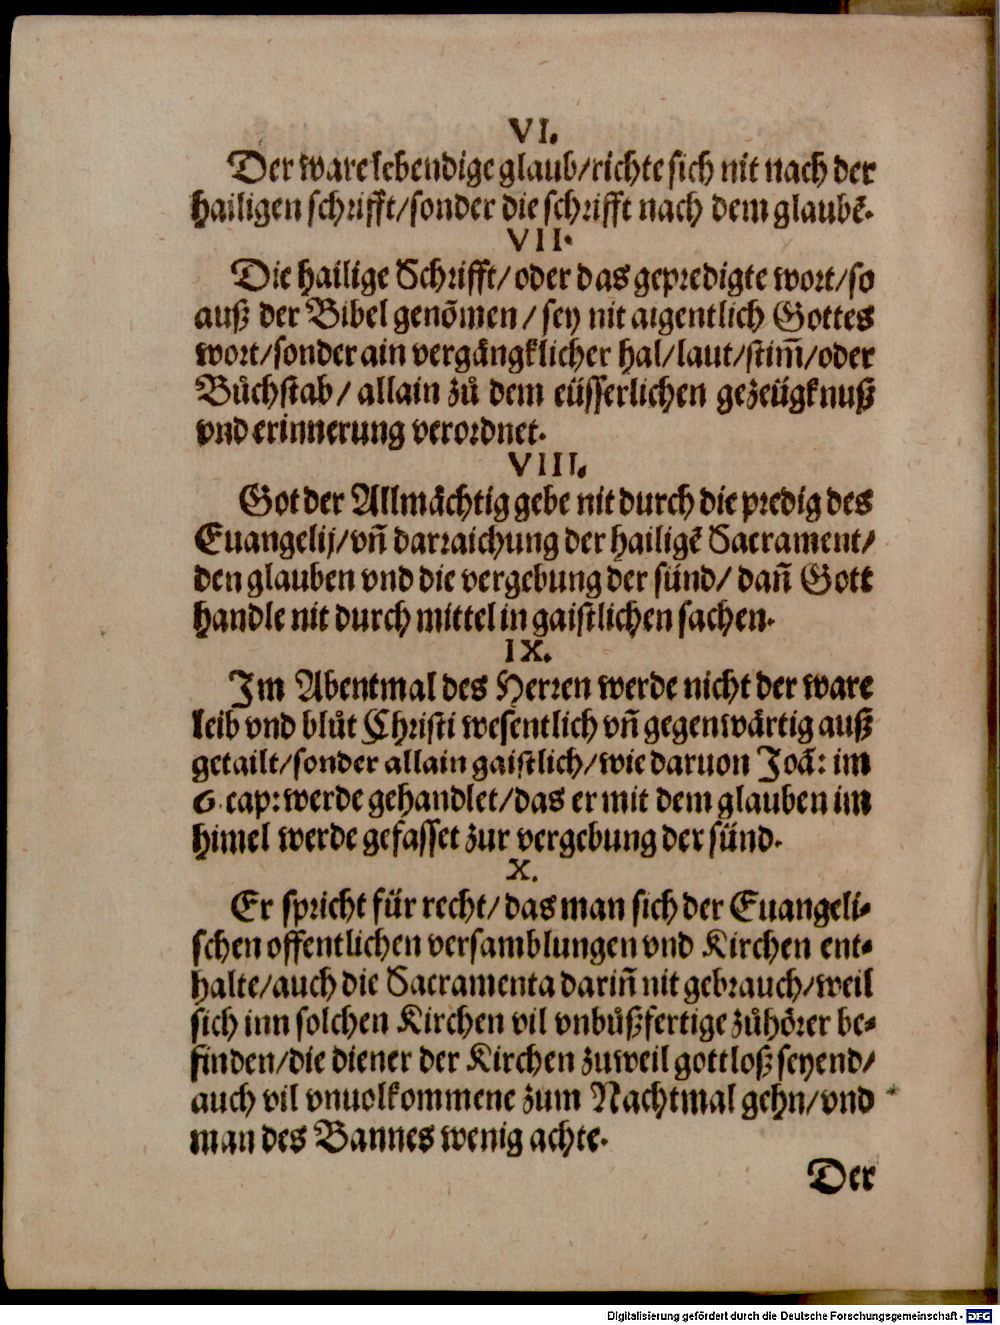 VI.
Der ware lebendige glaub/richte sich nit nach der
hailigen schrifft/sonder die schrifft nach dem glaubẽ.
VII.
Die hailige Schrifft/oder das gepredigte wort/so
auß der Bibel genõmen/sey nit aigentlich Gottes
wort/sonder ain vergångklicher hal/laut/stim̃/oder
Bůchstab/allain zů dem eüsserlichen gezeügknuß
vnd erinnerung verordnet.
VIII.
Got der Allmåchtig gebe nit durch die predig des
Euangelij/vñ darraichung der hailigẽ Sacrament/
den glauben vnd die vergebung der sünd/dañ Gott
handle nit durch mittel in gaistlichen sachen.
IX.
Im Abentmal des Herren werde nicht der ware
leib vnd blůt Christi wesentlich vñ gegenwårtig auß
getailt/sonder allain gaistlich/wie daruon Joã: im
6.cap:werde gehandlet/das er mit dem glauben im
himel werde gefasset zur vergebung der sünd.
X.
Er spricht für recht/das man sich der Euangeli⸗
schen offentlichen versamblungen vnd Kirchen ent⸗
halte/auch die Sacramenta dariñ nit gebrauch/weil
sich inn solchen Kirchen vil vnbůßfertige zůhőrer be⸗
finden/die diener der Kirchen zuweil gottloß seyend/
auch vil vnuolkommene zum Nachtmal gehn/vnd
man des Bannes wenig achte.
Der
Digitalisierung gefördert durch die Deutsche Forschungsgemeinschaft - DFG